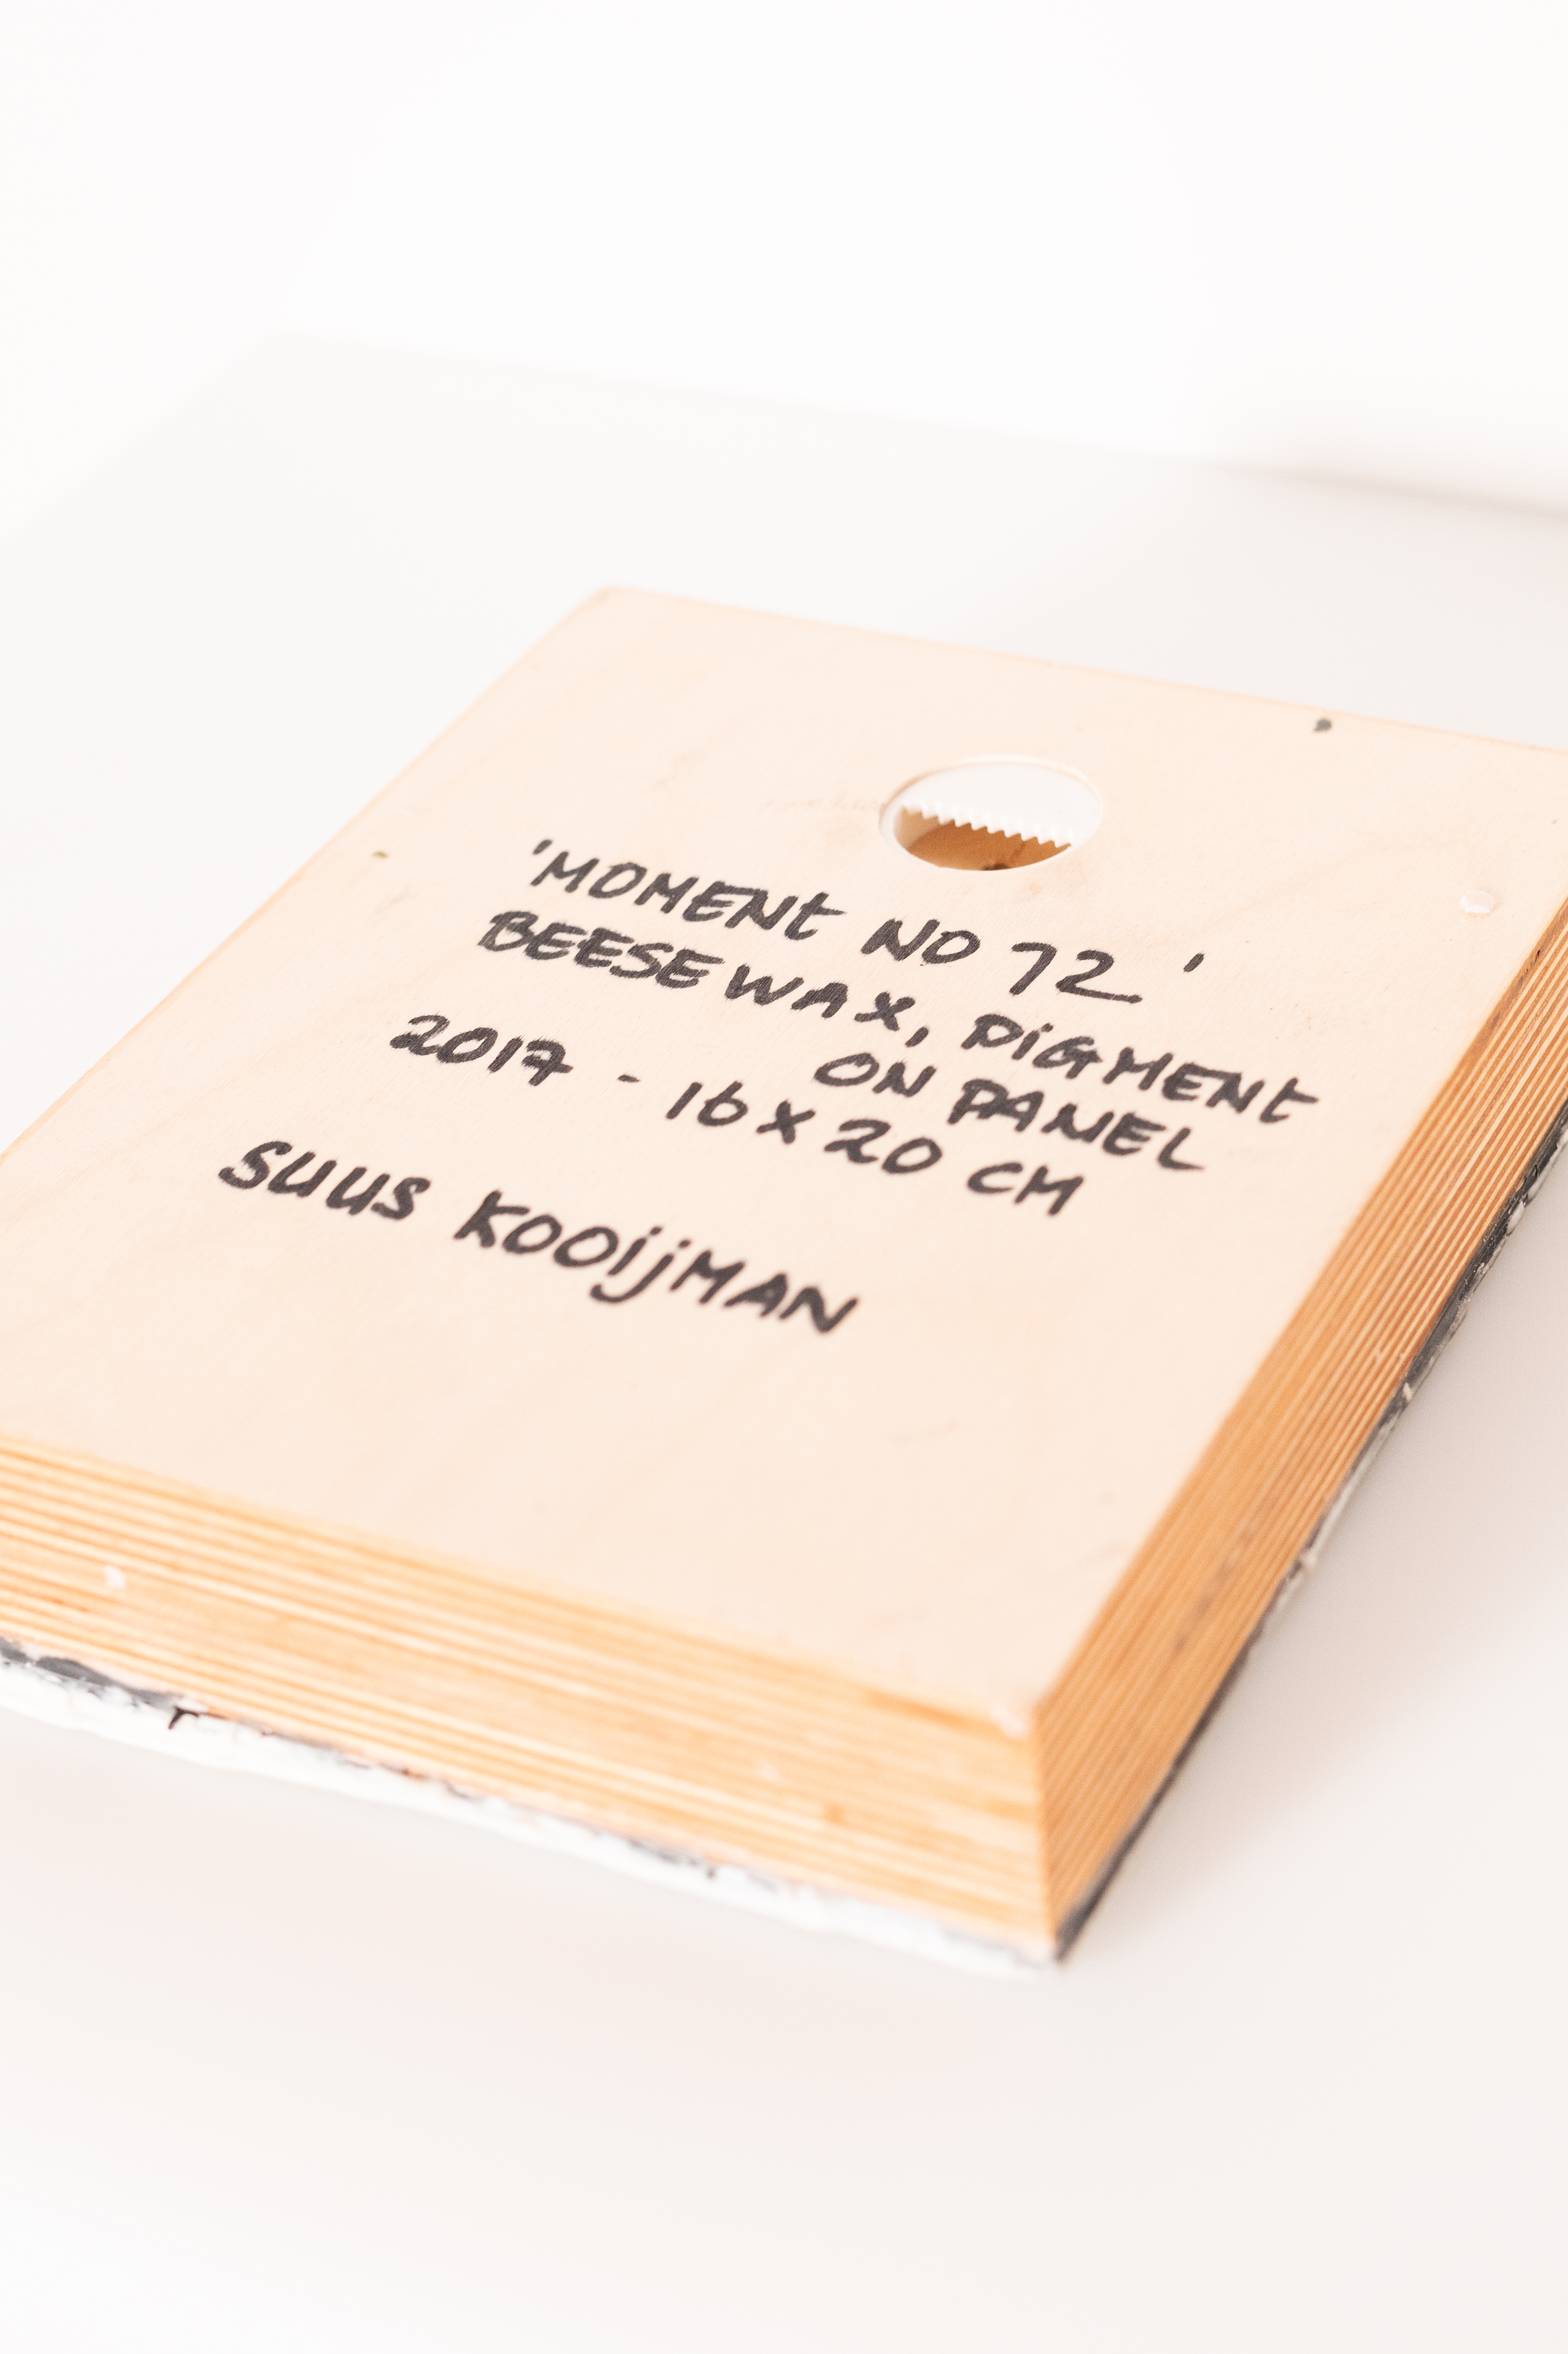 'MOMENT NO 72'
BEESEWAX, PIGMENT
ON PANEL
2017 - 16 x 20 CM
SUUS KOOijMAN